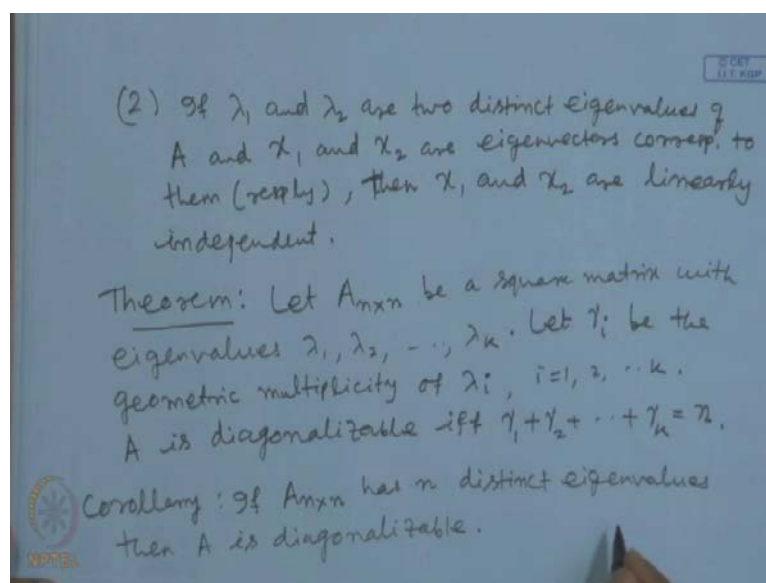 © CET
I.I.T. KGP
(2) If λ₁ and λ₂ are two distinct eigenvalues of
A and x₁ and x₂ are eigenvectors corresp. to
them (resply), then x₁ and x₂ are linearly
independent.
Theorem: Let Aₙₓₙ be a square matrix with
eigenvalues λ₁, λ₂, - .., λₖ. Let γᵢ be the
geometric multiplicity of λᵢ, i=1, 2, ·· k.
A is diagonalizable iff γ₁+γ₂+ ·· +γₖ = n.
Corollary: If Aₙₓₙ has n distinct eigenvalues
then A is diagonalizable.
NPTEL